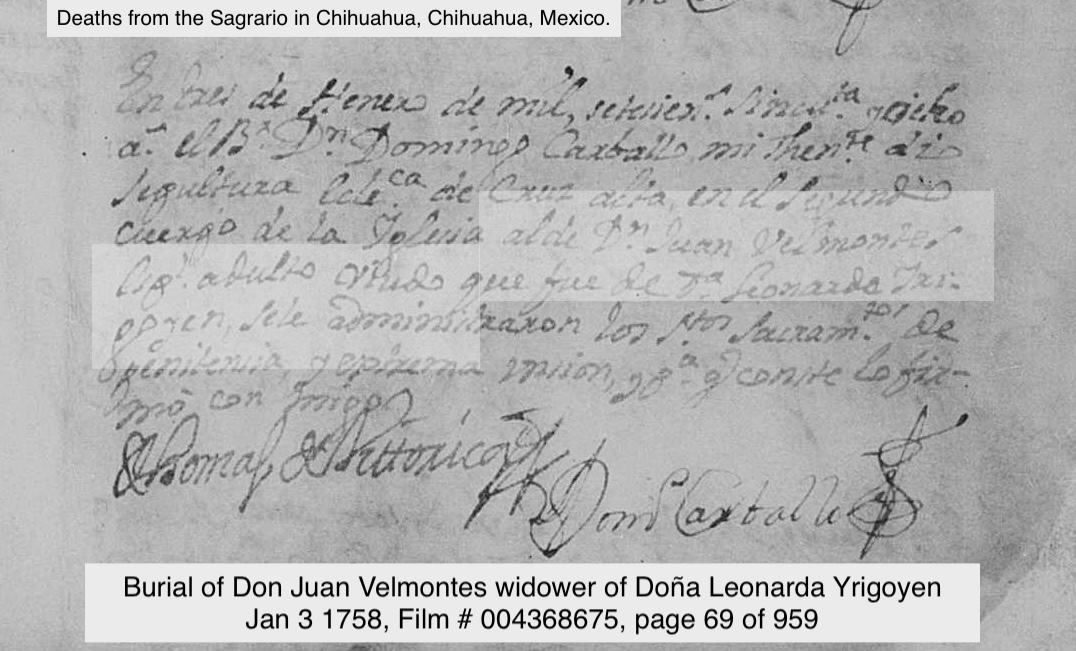 Deaths from the Sagrario in Chihuahua, Chihuahua, Mexico.
En tres de Henero de mil, setecien.s sincu.ta y ocho
a.s el B.r D.n Domingo Carballo mi Then.te dio
sepultura Ecle.ca de Cruz alta, en el segundo
cuerpo de la Iglesia al de D.n Juan Velmontes
Esp.l adulto viudo que fue de D.a Leonarda Iri-
goyen, sele administraron los S.tos Sacram.tos de
penitencia, y extrema uncion, y p.a q conste lo fir-
mò con migo
Thomas
Dom.o Carballo
Burial of Don Juan Velmontes widower of Doña Leonarda Yrigoyen
Jan 3 1758, Film # 004368675, page 69 of 959